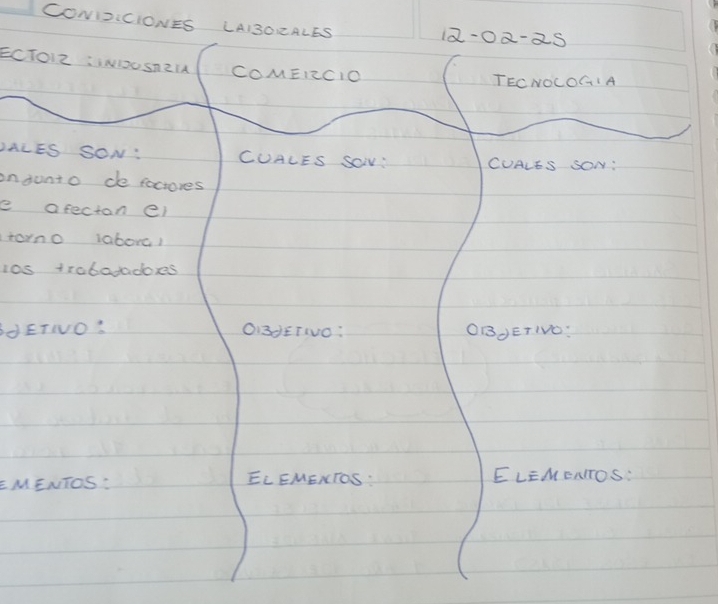 CONDICIONES LABORALES
12-02-25
ECTOR : INDUSTRIA
COMERCIO
TECNOLOGIA
UALES SON:
onjunto de factores
e afectan el
torno laboral
los trabajadores
CUALES SON:
CUALES SON:
BJETIVO:
OBJETIVO:
OBJETIVO:
EMENTOS:
ELEMENTOS:
ELEMENTOS: